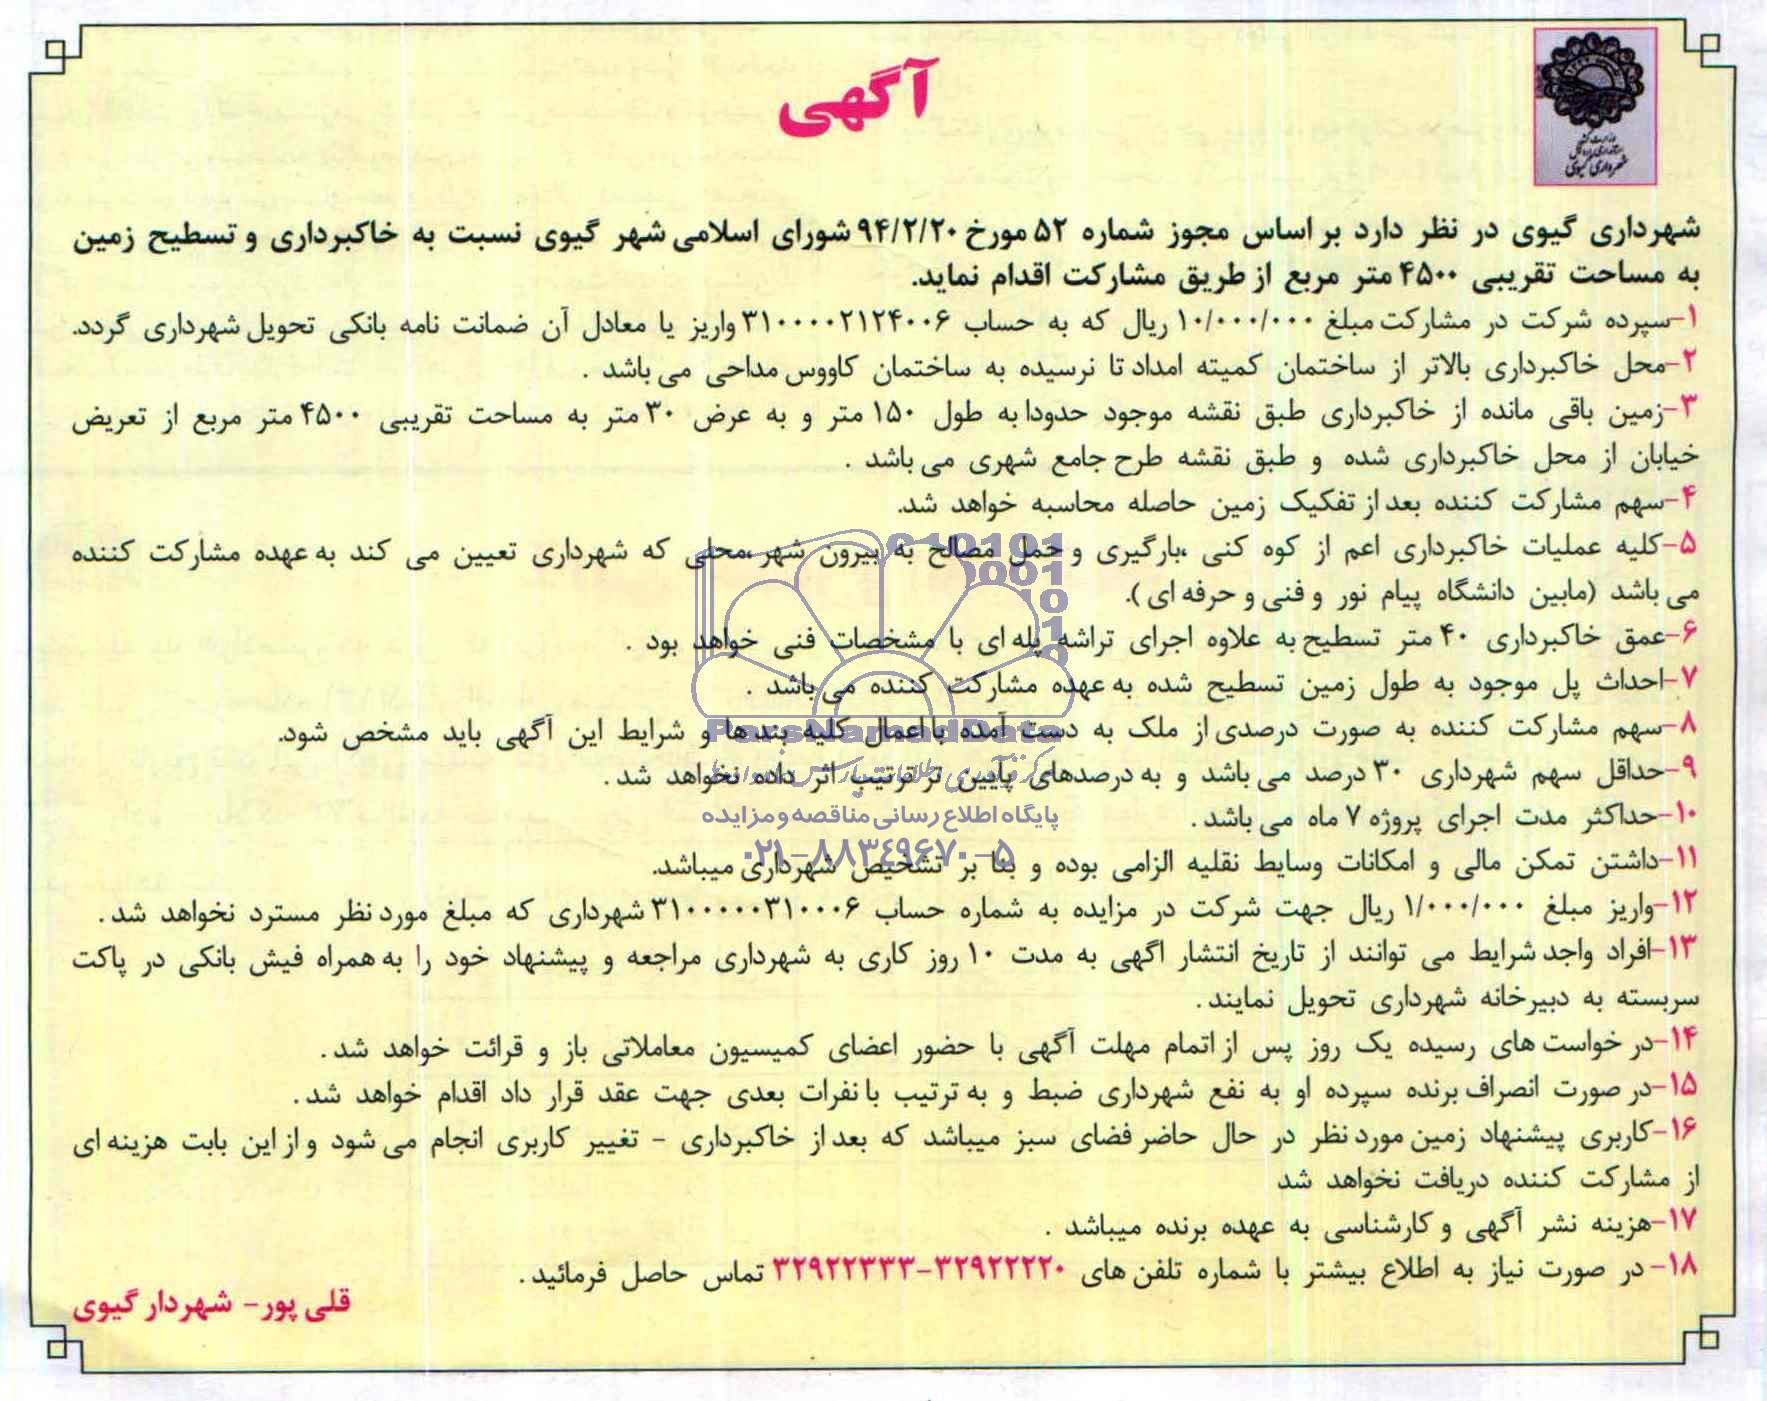 وزارت کشور
استانداری اردبیل
شهرداری گیوی
آگهی
شهرداری گیوی در نظر دارد بر اساس مجوز شماره ۵۲ مورخ ۹۴/۲/۲۰ شورای اسلامی شهر گیوی نسبت به خاکبرداری و تسطیح زمین
به مساحت تقریبی ۴۵۰۰ متر مربع از طریق مشارکت اقدام نماید.
۱-سپرده شرکت در مشارکت مبلغ ۱۰/۰۰۰/۰۰۰ ریال که به حساب ۳۱۰۰۰۰۲۱۲۴۰۰۶ واریز یا معادل آن ضمانت نامه بانکی تحویل شهرداری گردد.
۲-محل خاکبرداری بالاتر از ساختمان کمیته امداد تا نرسیده به ساختمان کاووس مداحی می باشد .
۳-زمین باقی مانده از خاکبرداری طبق نقشه موجود حدودا به طول ۱۵۰ متر و به عرض ۳۰ متر به مساحت تقریبی ۴۵۰۰ متر مربع از تعریض
خیابان از محل خاکبرداری شده و طبق نقشه طرح جامع شهری می باشد .
۴-سهم مشارکت کننده بعد از تفکیک زمین حاصله محاسبه خواهد شد.
۵-کلیه عملیات خاکبرداری اعم از کوه کنی ،بارگیری و حمل مصالح به بیرون شهر،محلی که شهرداری تعیین می کند به عهده مشارکت کننده
می باشد (مابین دانشگاه پیام نور و فنی و حرفه ای ).
۶-عمق خاکبرداری ۴۰ متر تسطیح به علاوه اجرای تراشه پله ای با مشخصات فنی خواهد بود .
۷-احداث پل موجود به طول زمین تسطیح شده به عهده مشارکت کننده می باشد .
۸-سهم مشارکت کننده به صورت درصدی از ملک به دست آمده با اعمال کلیه بندها و شرایط این آگهی باید مشخص شود.
ParsNamadData
۹-حداقل سهم شهرداری ۳۰ درصد می باشد و به درصدهای پایین تر ترتیب اثر داده نخواهد شد .
پایگاه اطلاع رسانی مناقصه و مزایده
۱۰-حداکثر مدت اجرای پروژه ۷ ماه می باشد .
۰۲۱-۸۸۳۴۹۶۷۰-۵
۱۱-داشتن تمکن مالی و امکانات وسایط نقلیه الزامی بوده و بنا بر تشخیص شهرداری میباشد.
۱۲-واریز مبلغ ۱/۰۰۰/۰۰۰ ریال جهت شرکت در مزایده به شماره حساب ۳۱۰۰۰۰۰۳۱۰۰۰۶ شهرداری که مبلغ مورد نظر مسترد نخواهد شد .
۱۳-افراد واجد شرایط می توانند از تاریخ انتشار اگهی به مدت ۱۰ روز کاری به شهرداری مراجعه و پیشنهاد خود را به همراه فیش بانکی در پاکت
سربسته به دبیرخانه شهرداری تحویل نمایند .
۱۴-در خواست های رسیده یک روز پس از اتمام مهلت آگهی با حضور اعضای کمیسیون معاملاتی باز و قرائت خواهد شد .
۱۵-در صورت انصراف برنده سپرده او به نفع شهرداری ضبط و به ترتیب با نفرات بعدی جهت عقد قرار داد اقدام خواهد شد .
۱۶-کاربری پیشنهاد زمین مورد نظر در حال حاضر فضای سبز میباشد که بعد از خاکبرداری - تغییر کاربری انجام می شود و از این بابت هزینه ای
از مشارکت کننده دریافت نخواهد شد
۱۷-هزینه نشر آگهی و کارشناسی به عهده برنده میباشد .
۱۸- در صورت نیاز به اطلاع بیشتر با شماره تلفن های ۳۲۹۲۲۲۲۰-۳۲۹۲۲۳۳۳ تماس حاصل فرمائید .
قلی پور- شهردار گیوی